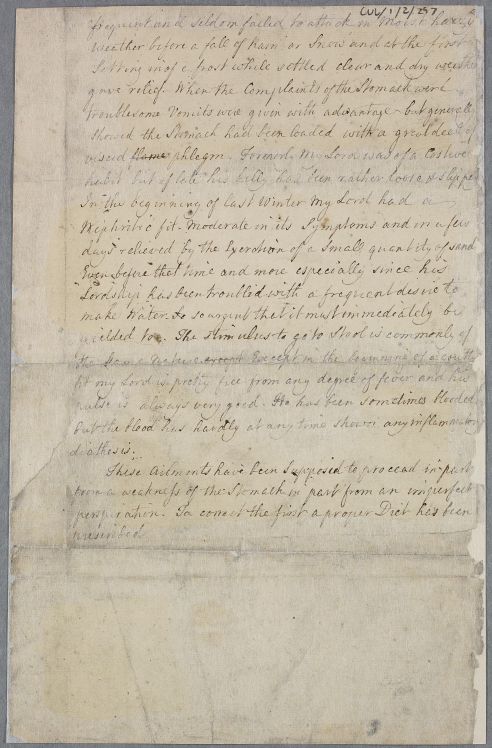 CUL/1/2/257
frequent and seldom failed to attack in moist hazy
weather before a fall of Rain or Snow and at the first
Setting in of a frost while settled clear and dry weather
gave relief. When the Complaints of the Stomach were
troublesome Vomits were given with advantage - but generally
showed the Stomach had been loaded with a great deal of
viscid phlegm. Formerly My Lord was of a Costive
habit but of late his belly had been rather loose & slippy
In the beginning of last Winter My Lord had a
Nephritic fit. Moderate in its Symptoms and in a few
days relieved by the Excretion of a Small quantity of sand
Even before that time and more especially since his
Lordship has been troubled with a frequent desire to
make Water & so urgent that it must immediately be
yielded to. The stimulus to go to Stool is commonly of
the same nature except Except in the beginning of a
fit my Lord is pretty free from any degree of fever and his
pulse is always very good. He has been sometimes blooded
but the blood has hardly at any time shown any inflammatory
diathesis.
These Ailments have been Supposed to proceed in part
from a weakness of the Stomach in part from an imperfect
perspiration. To correct the first a proper Diet has been
prescribed